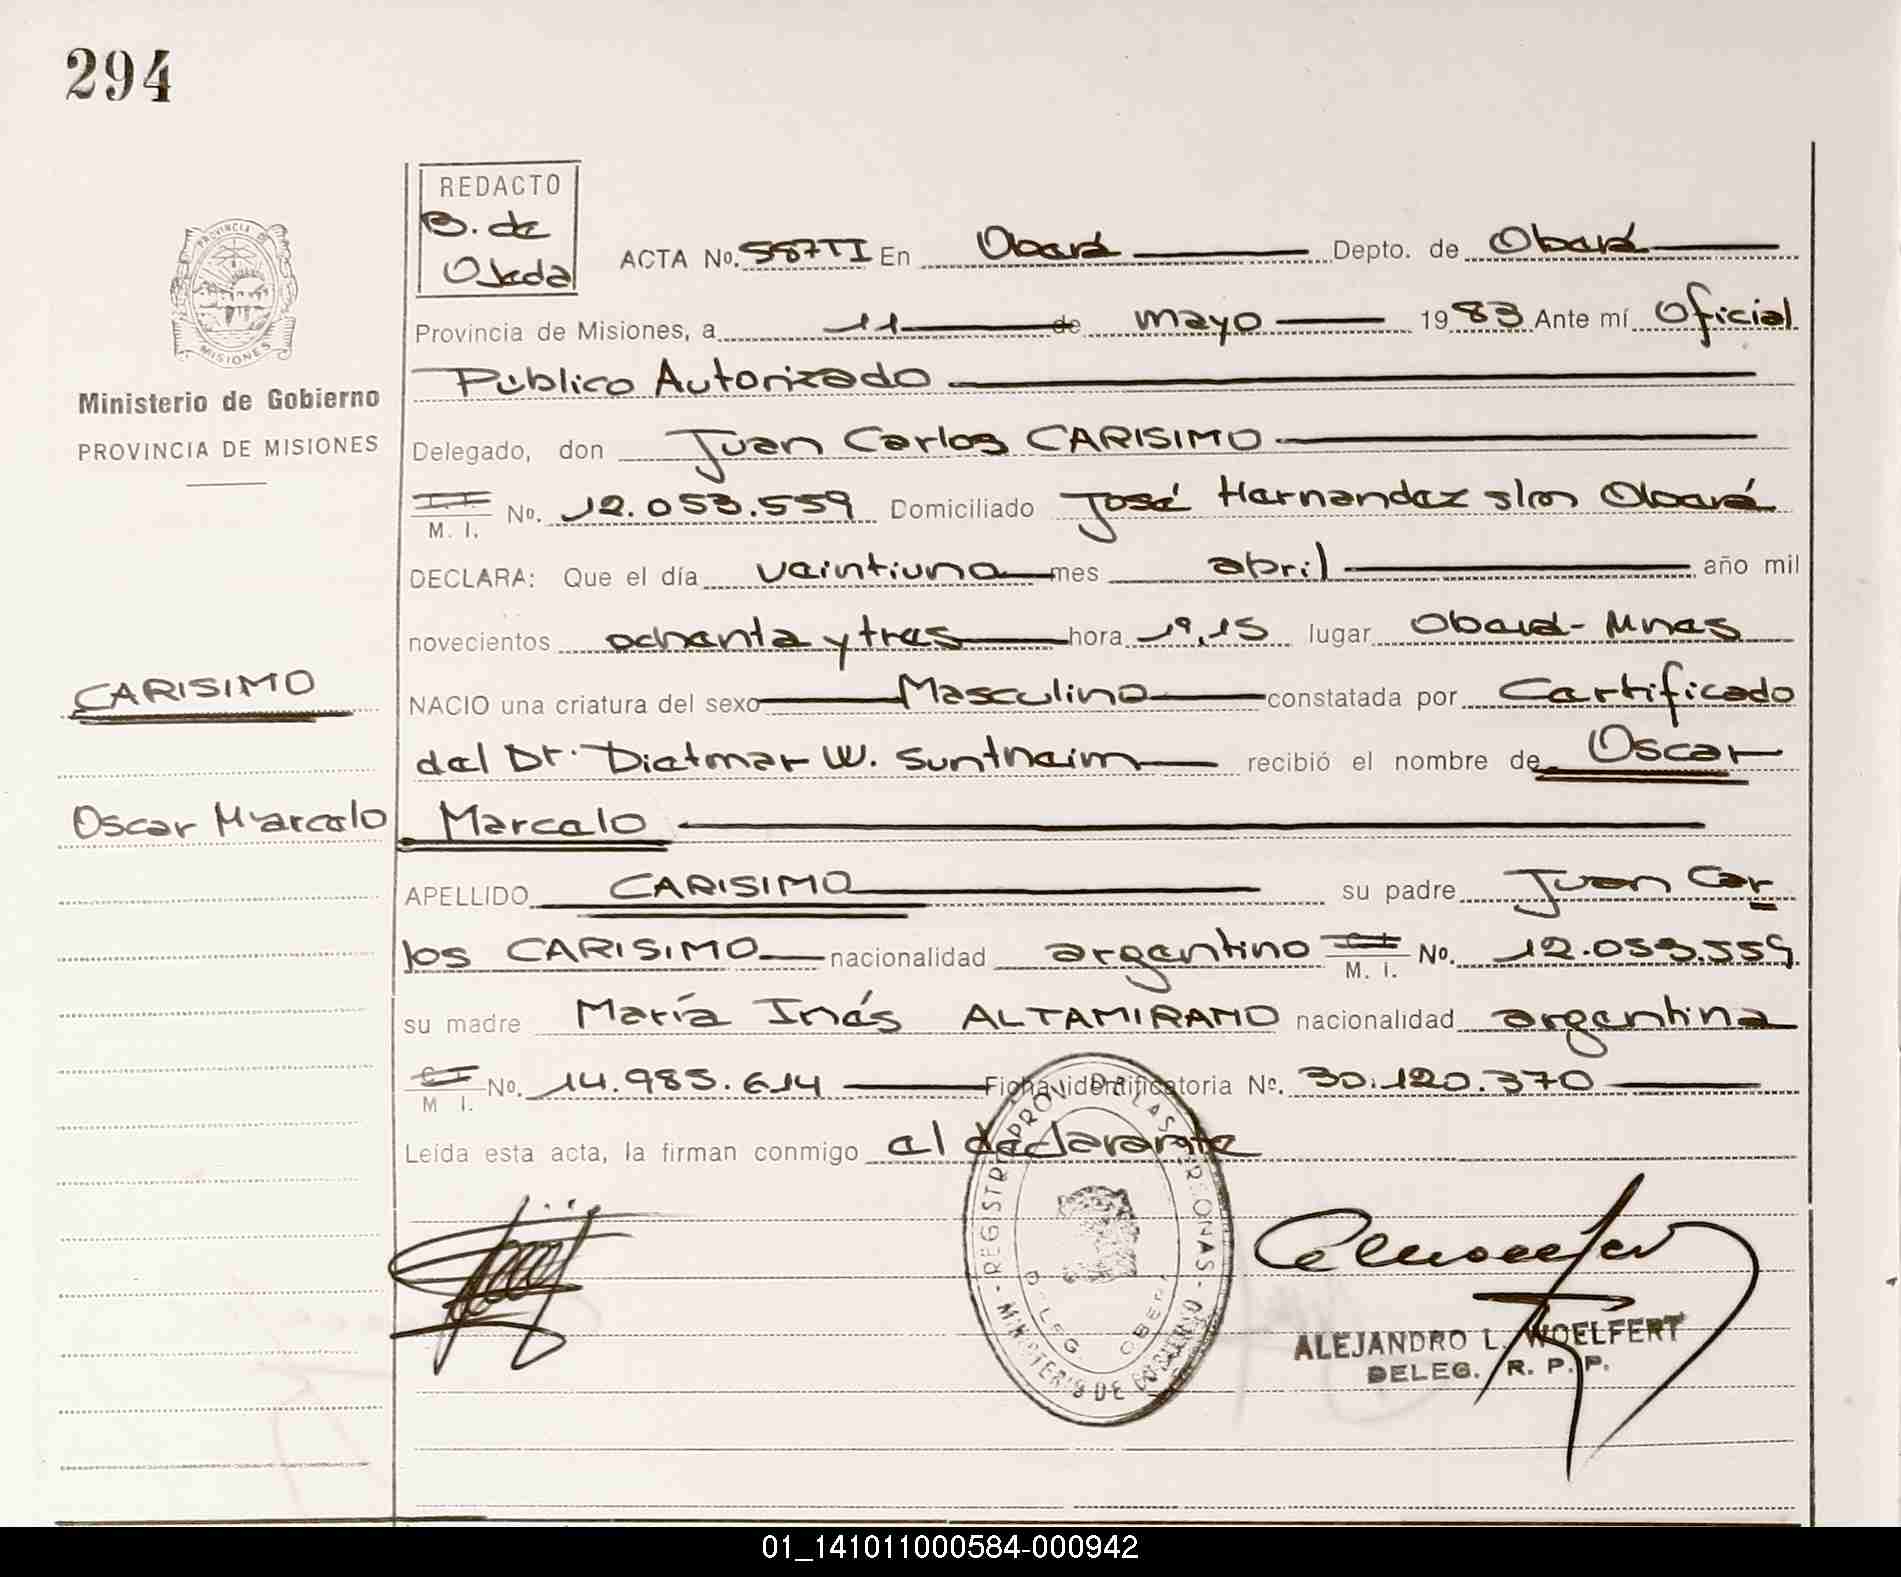 294
REDACTO
B. de
Ojeda
ACTA No. 587TI En Oberá Depto. de Oberá
Provincia de Misiones, a 11 de mayo 1983 Ante mí Oficial
Público Autorizado
PROVINCIA DE
MISIONES
Ministerio de Gobierno
PROVINCIA DE MISIONES
Delegado, don Juan Carlos CARISIMO
M. I. No. 12.053.559 Domiciliado José Hernandez s/n Oberá
DECLARA: Que el día veintiuno mes abril año mil
novecientos ochenta y tres hora 19,15 lugar Oberá-Mnes
CARISIMO
NACIO una criatura del sexo Masculino constatada por Certificado
del Dr. Dietmar W. Suntheim recibió el nombre de Oscar
Oscar Marcelo
Marcelo
APELLIDO CARISIMO su padre Juan Car
los CARISIMO nacionalidad argentino C I M. I. No. 12.053.559
su madre María Inés ALTAMIRANO nacionalidad argentina
C I M I. No. 14.985.614 Ficha identificatoria No. 30.120.370
Leída esta acta, la firman conmigo el declarante
REGISTRO PROV. DE LAS PERSONAS - MINISTERIO DE GOBIERNO
DELEG. OBERA
ALEJANDRO L. WOELFERT
DELEG. R. P. P.
01_141011000584-000942